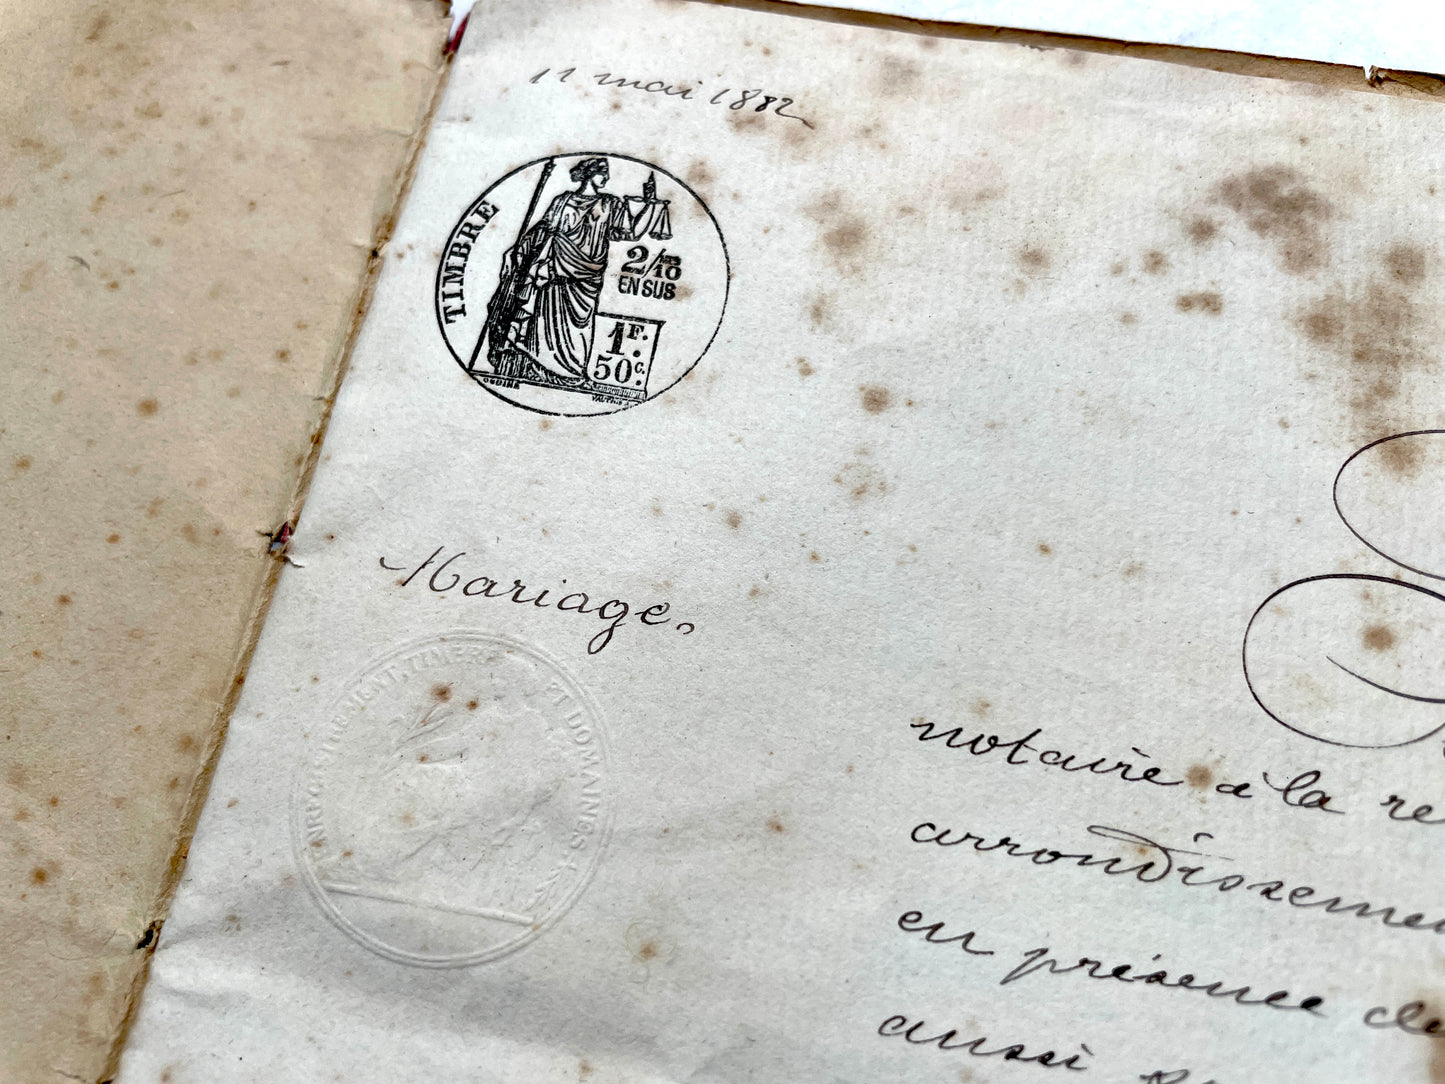 11 mai 1882
TIMBRE
2/10
EN SUS
1F.
50c.
OUDINÉ
Mariage.
ENREGISTREMENT, TIMBRE ET DOMAINES
notaire à la re
arrondissemen
en présence de
aussi